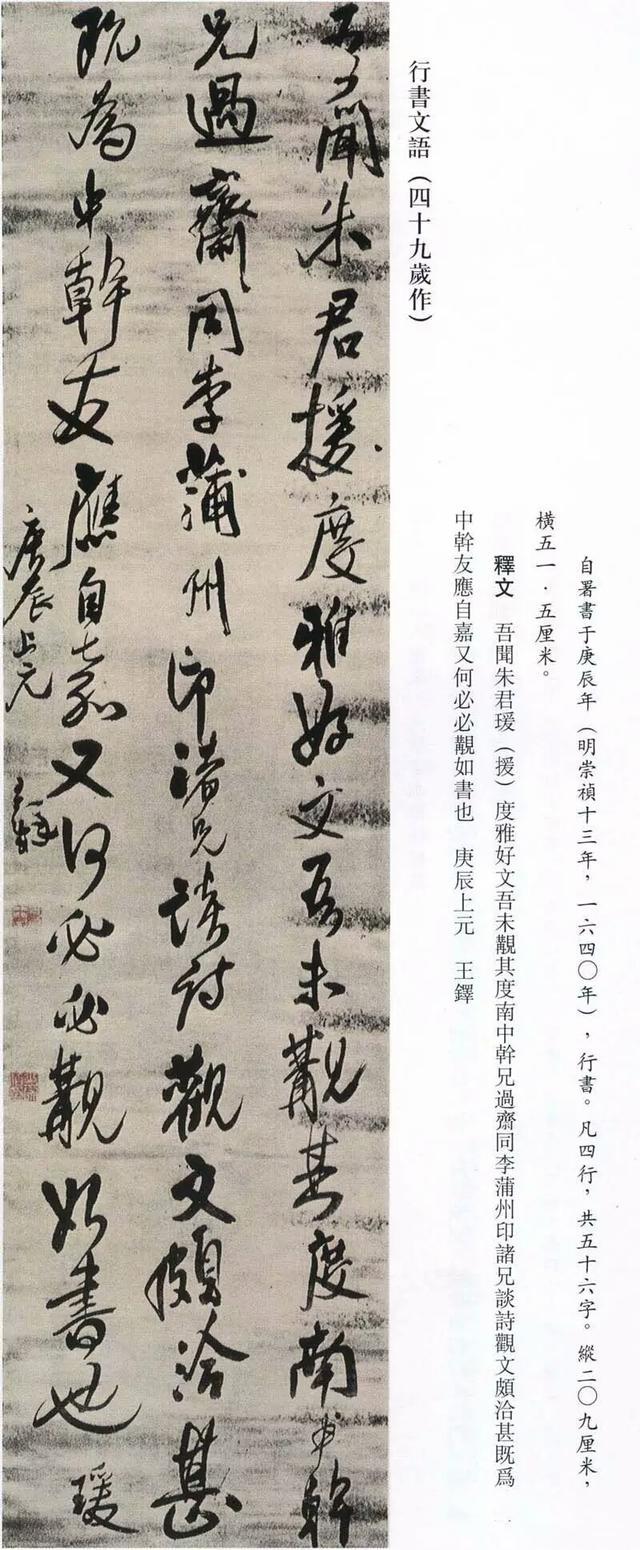 行書文語（四十九歲作）
自署書于庚辰年（明崇禎十三年，一六四〇年），行書。凡四行，共五十六字。縱二〇九厘米，
橫五一．五厘米。
釋文　吾聞朱君瑗（援）度雅好文吾未覯其度南中幹兄過齋同李蒲州印諸兄談詩觀文頗洽甚既爲
中幹友應自嘉又何必必覯如書也　庚辰上元　王鐸
吾聞朱君援度雅好文吾未覯其度南中幹
兄過齋同李蒲州印諸兄談詩觀文頗洽甚
既為中幹友應自嘉又何必必覯如書也 瑗
庚辰上元 王鐸